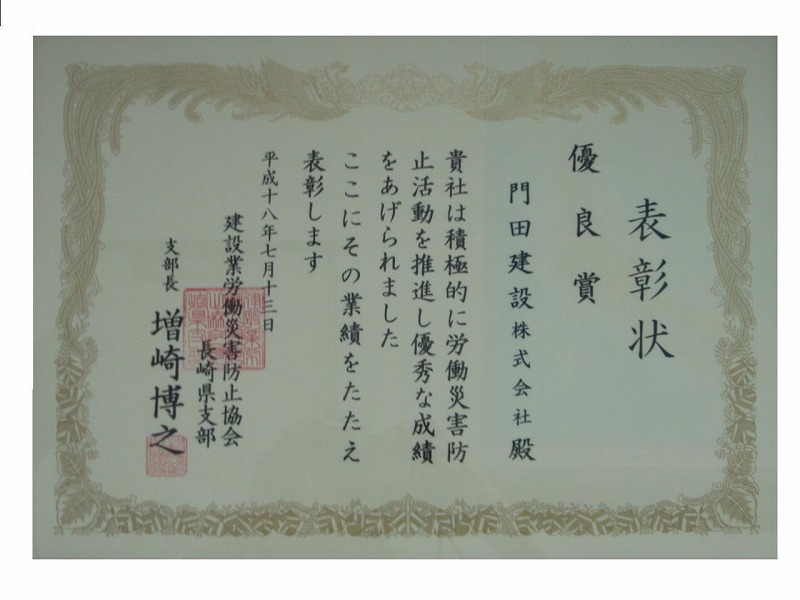 表彰状
優良賞
門田建設株式会社殿
貴社は積極的に労働災害防
止活動を推進し優秀な成績
をあげられました
ここにその業績をたたえ
表彰します
平成十八年七月十三日
建設業労働災害防止協会
長崎県支部
支部長
増崎博之